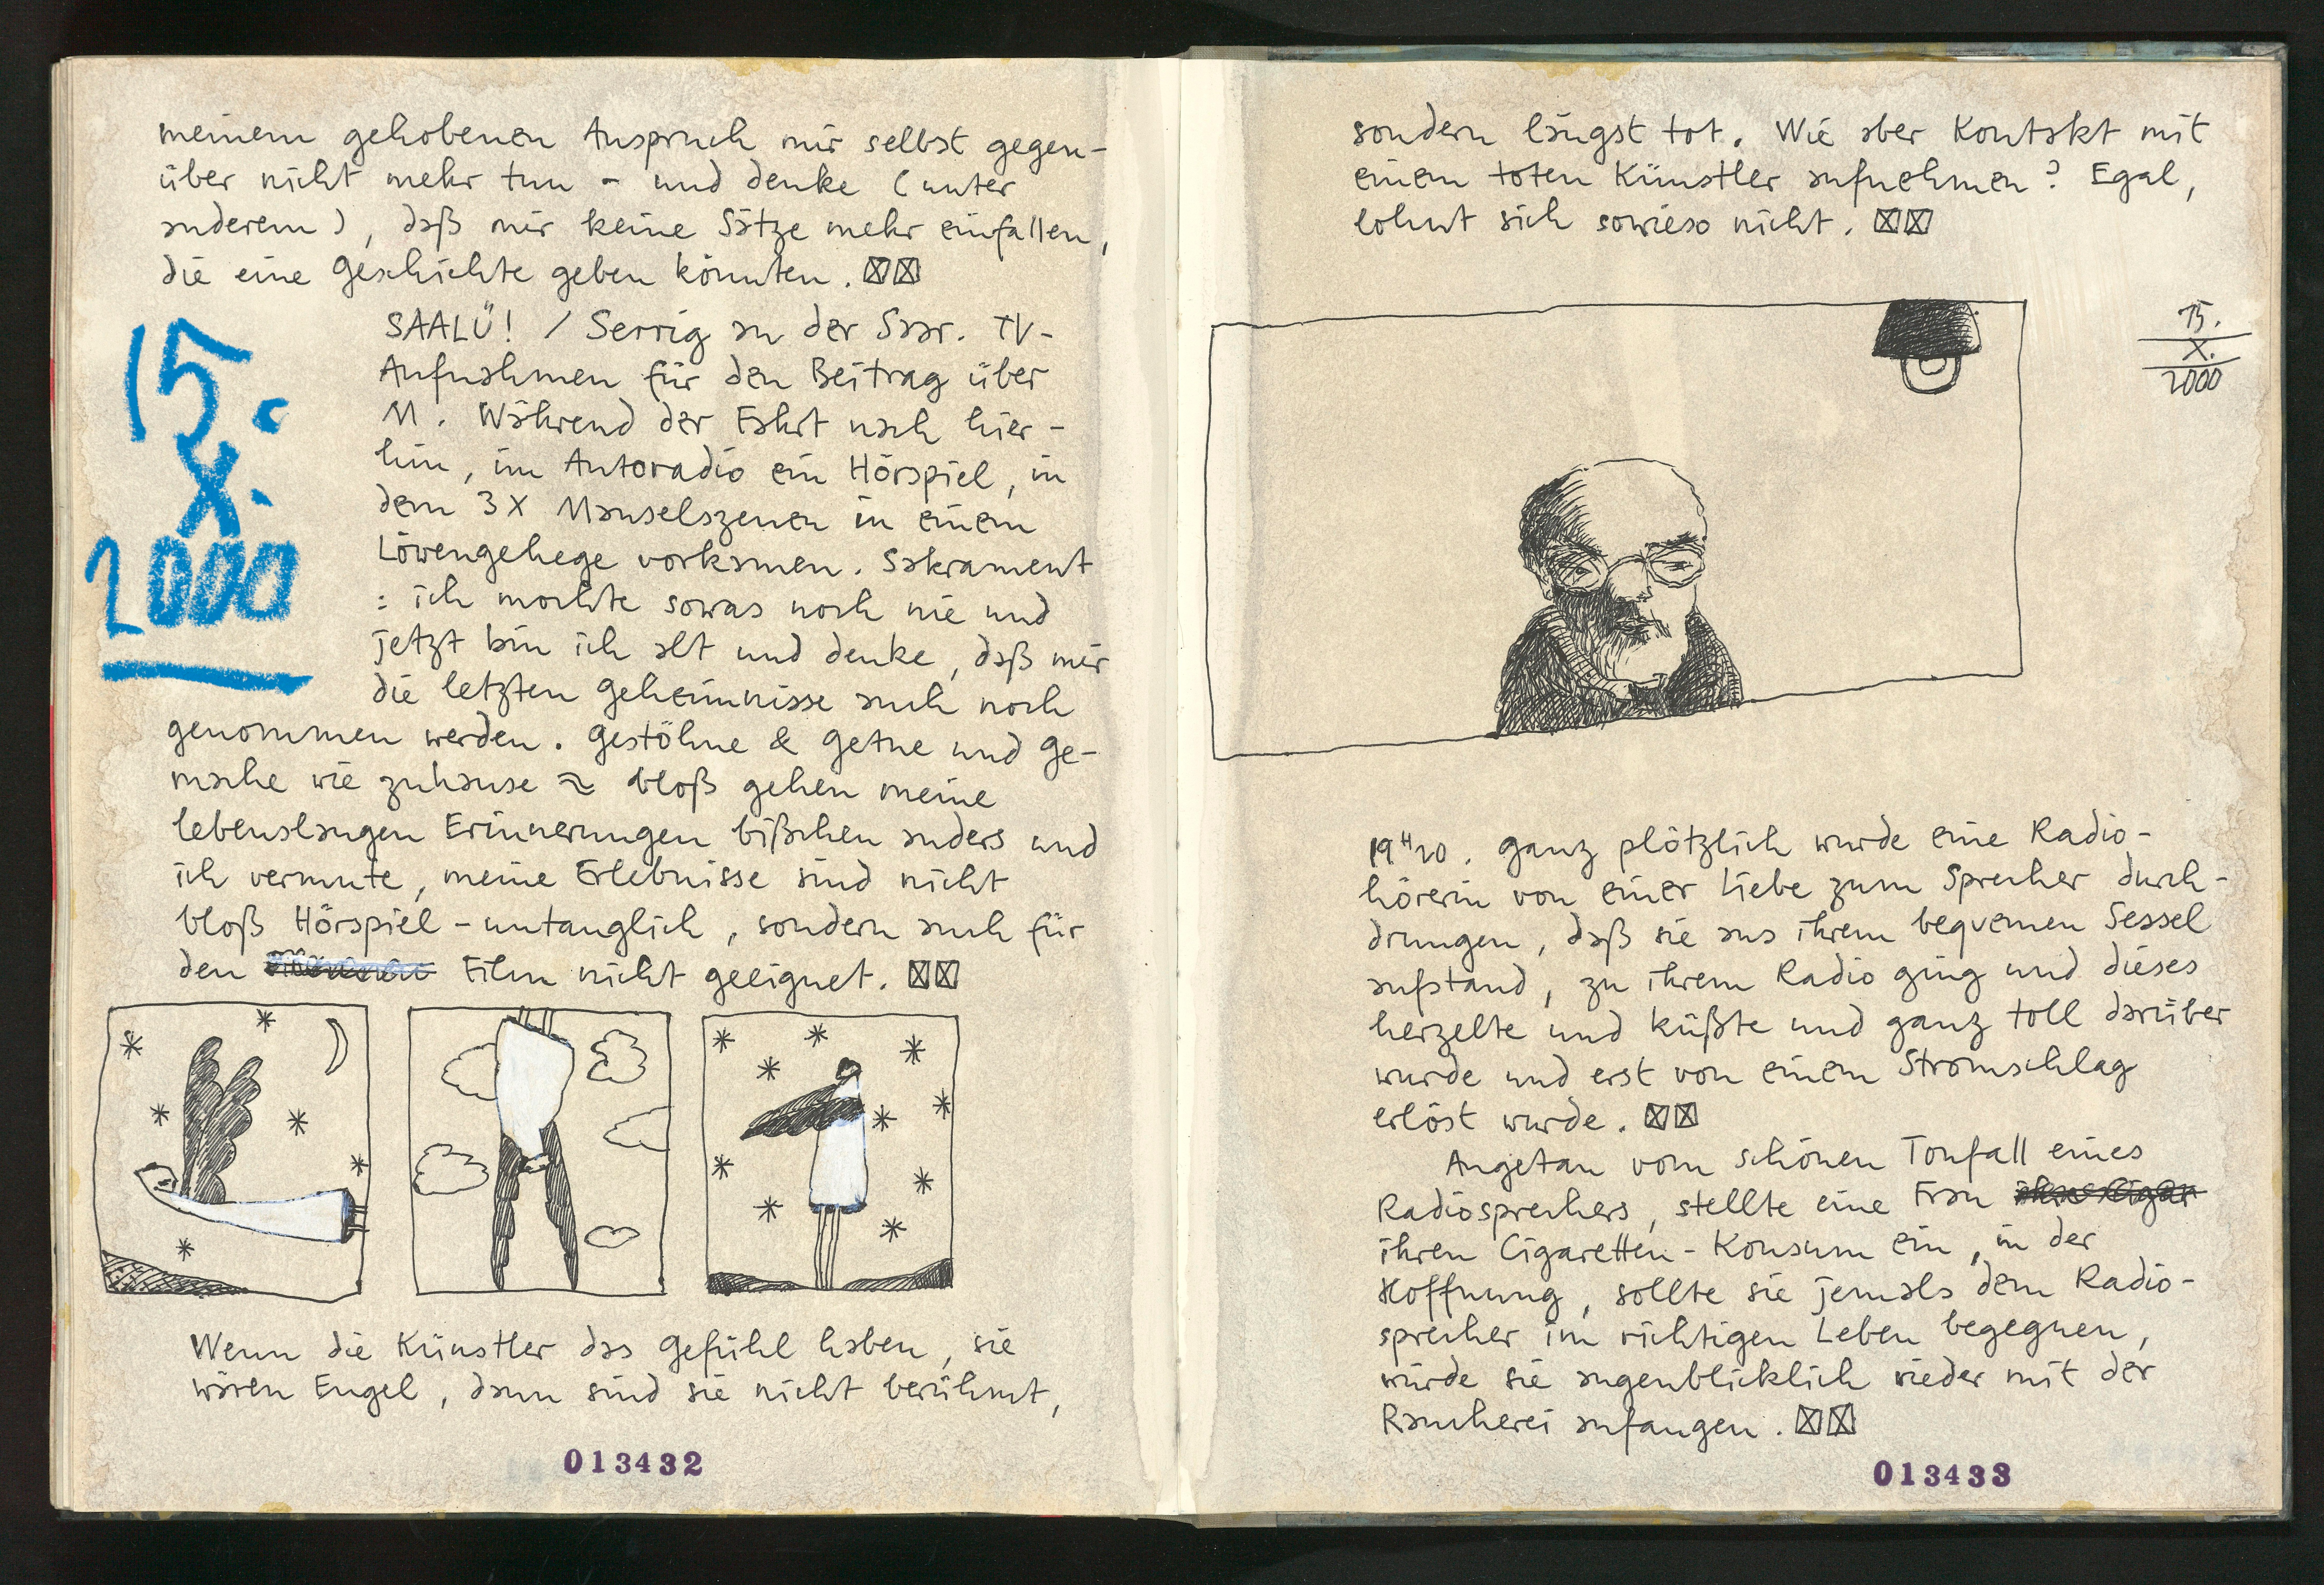 meinem gehobenen Anspruch mir selbst gegen-
über nicht mehr tun - und denke (unter
anderem), daß mir keine Sätze mehr einfallen,
die eine Geschichte geben könnten.
15.
X.
2000
SAALÜ! / Serrig an der Saar. TV-
Aufnahmen für den Beitrag über
M. Während der Fahrt nach hier-
hin, im Autoradio ein Hörspiel, in
dem 3X Manselszenen in einem
Löwengehege vorkamen. Sakrament
: ich mochte sowas noch nie und
jetzt bin ich alt und denke, daß mir
die letzten Geheimnisse auch noch
genommen werden. Gestöhne & Getue und Ge-
mache wie zuhause ≈ bloß gehen meine
lebenslangen Erinnerungen bißchen anders und
ich vermute, meine Erlebnisse sind nicht
bloß Hörspiel-untauglich, sondern auch für
den Film nicht geeignet.
Wenn die Künstler das Gefühl haben, sie
wären Engel, dann sind sie nicht berühmt,
013432
sondern längst tot. Wie aber Kontakt mit
einem toten Künstler aufnehmen? Egal,
lohnt sich sowieso nicht.
15.
X.
2000
19H20. Ganz plötzlich wurde eine Radio-
hörerin von einer Liebe zum Sprecher durch-
drungen, daß sie aus ihrem bequemen Sessel
aufstand, zu ihrem Radio ging und dieses
herzelte und küßte und ganz toll darüber
wurde und erst von einem Stromschlag
erlöst wurde.
Angetan vom schönen Tonfall eines
Radiosprechers, stellte eine Frau
ihren Cigaretten-Konsum ein, in der
Hoffnung, sollte sie jemals dem Radio-
sprecher im richtigen Leben begegnen,
würde sie augenblicklich wieder mit der
Raucherei anfangen.
013433